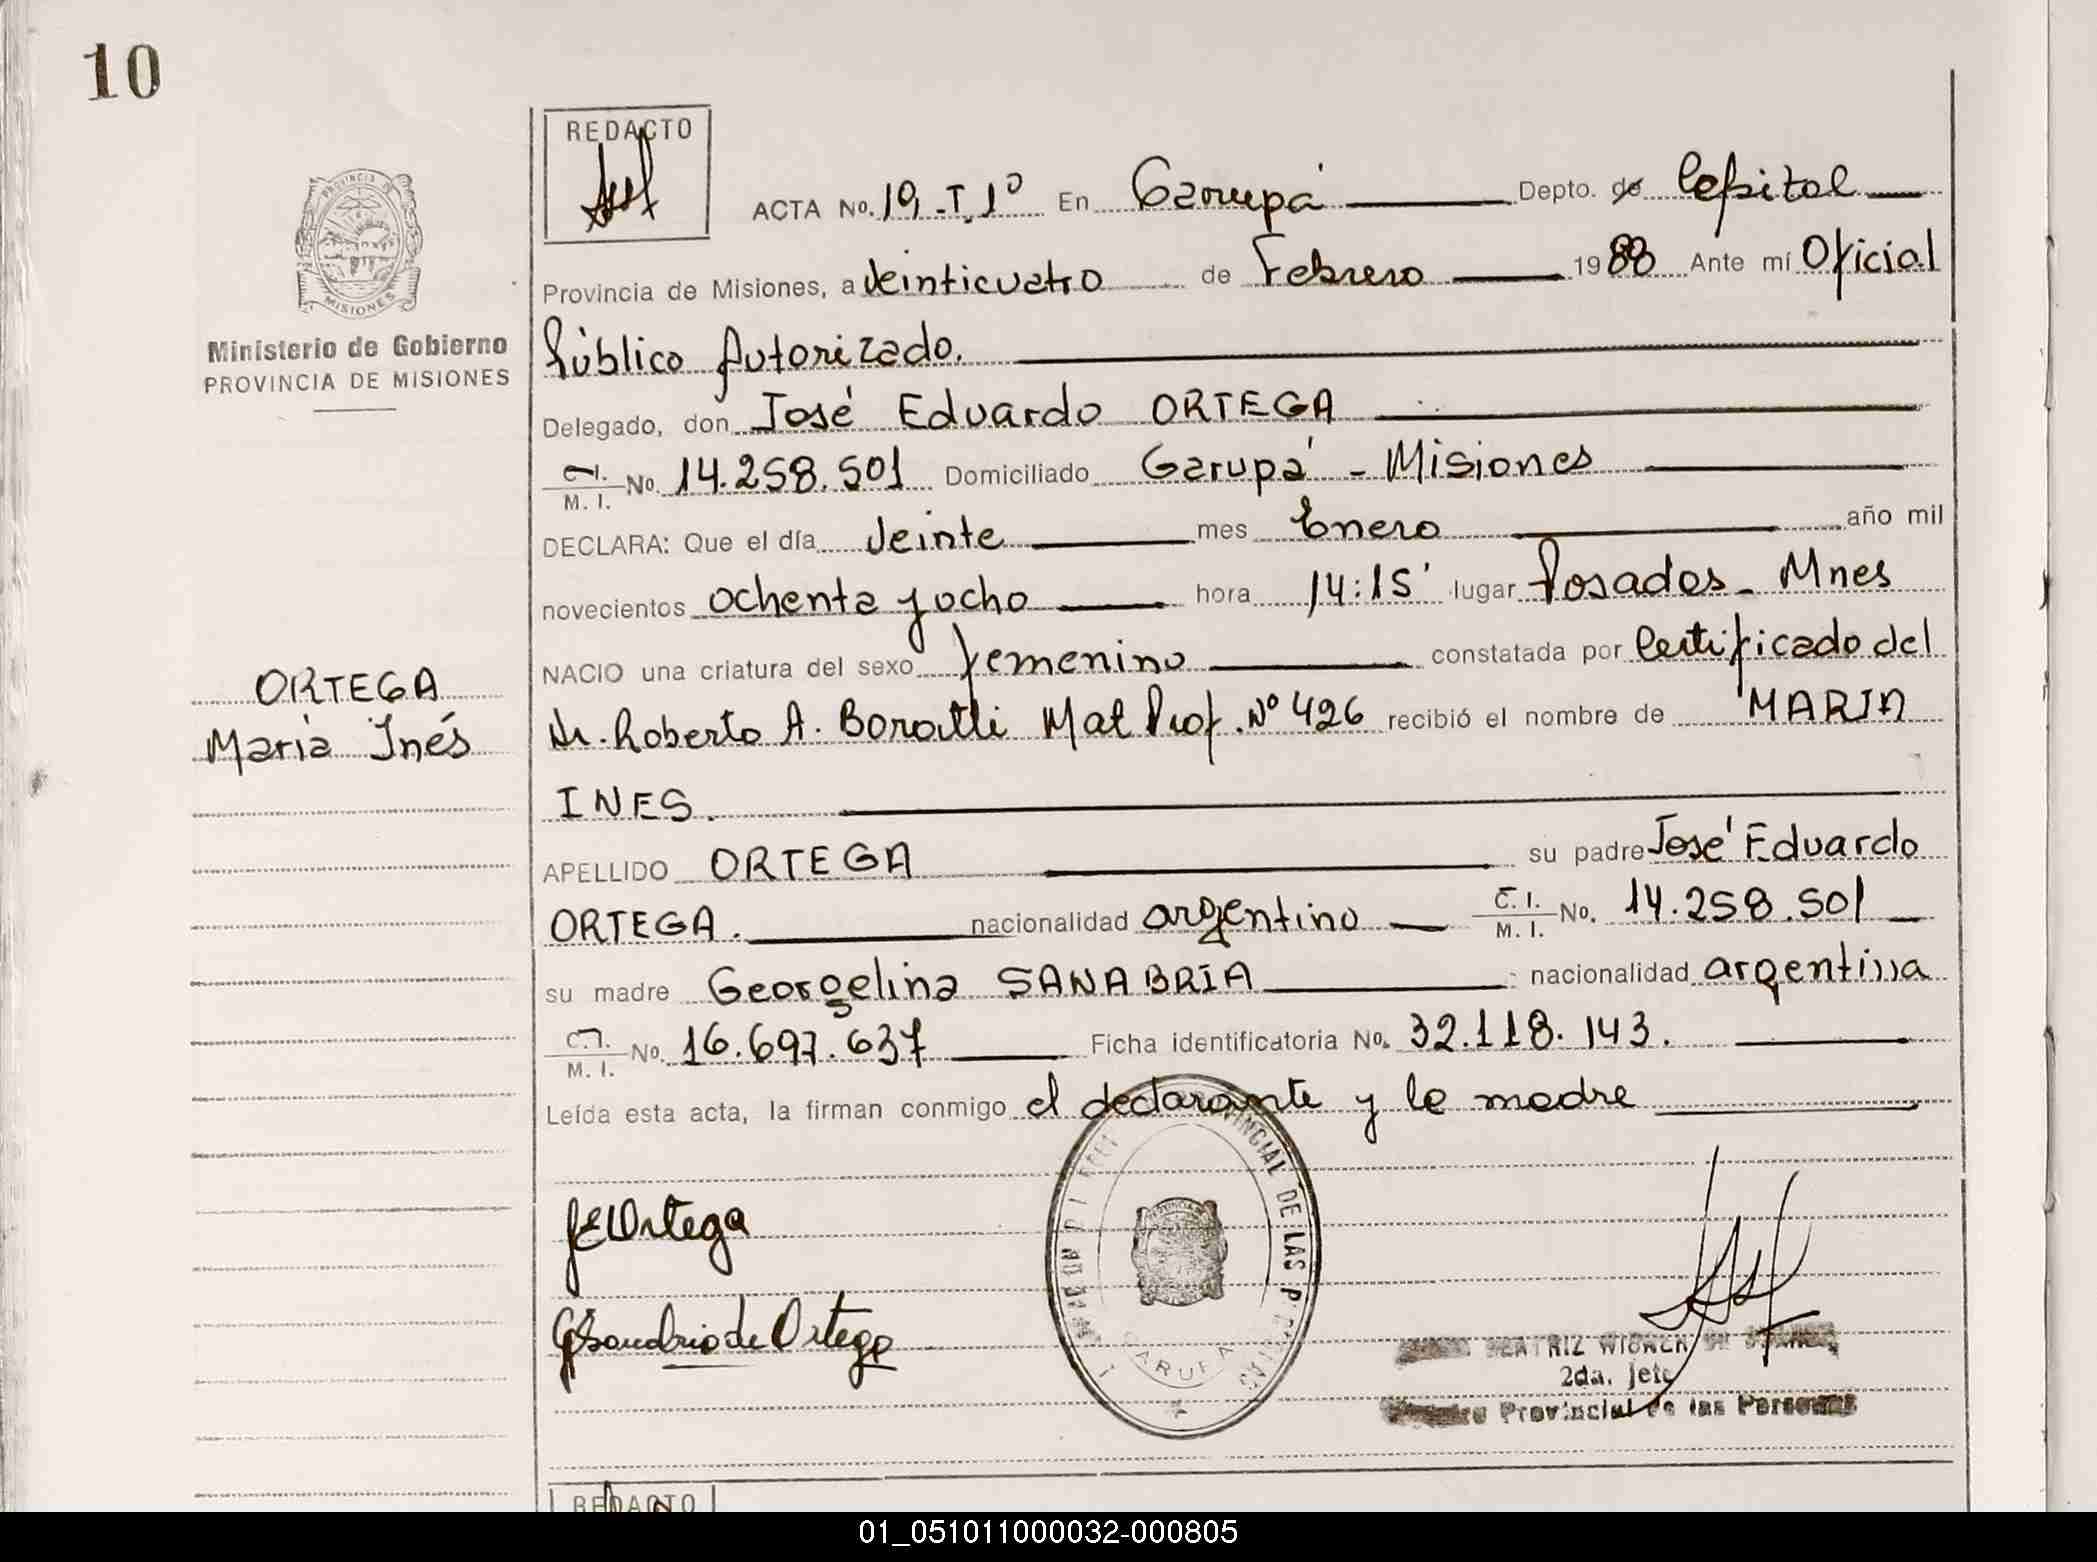 10
REDACTO
ACTA No. 19 -T.1º En Garupá Depto. de Capital
PROVINCIA DE
MISIONES
Provincia de Misiones, a Veinticuatro de Febrero 1988 Ante mí Oficial
Ministerio de Gobierno
PROVINCIA DE MISIONES
Público Autorizado.
Delegado, don José Eduardo ORTEGA
C.I. M. I. No. 14.258.501 Domiciliado Garupá - Misiones
DECLARA: Que el día Veinte mes Enero año mil
novecientos ochenta y ocho hora 14:15' lugar Posadas - Mnes
NACIO una criatura del sexo femenino constatada por Certificado del
ORTEGA
Maria Inés
Dr. Roberto A. Mat Prof. Nº 426 recibió el nombre de MARIA
INES.
APELLIDO ORTEGA su padre José Eduardo
ORTEGA. nacionalidad argentino C. I. M. I. No. 14.258.501
su madre Georgelina SANABRIA nacionalidad argentina
C.I. M. I. No. 16.697.637 Ficha identificatoria No. 32.118.143.
Leída esta acta, la firman conmigo el declarante y la madre
VINCIAL DE LAS
GARUPA
JEOrtega
de Ortega
BEATRIZ
2da. jefe
Provincial de las Personas
REDACTO
01_051011000032-000805